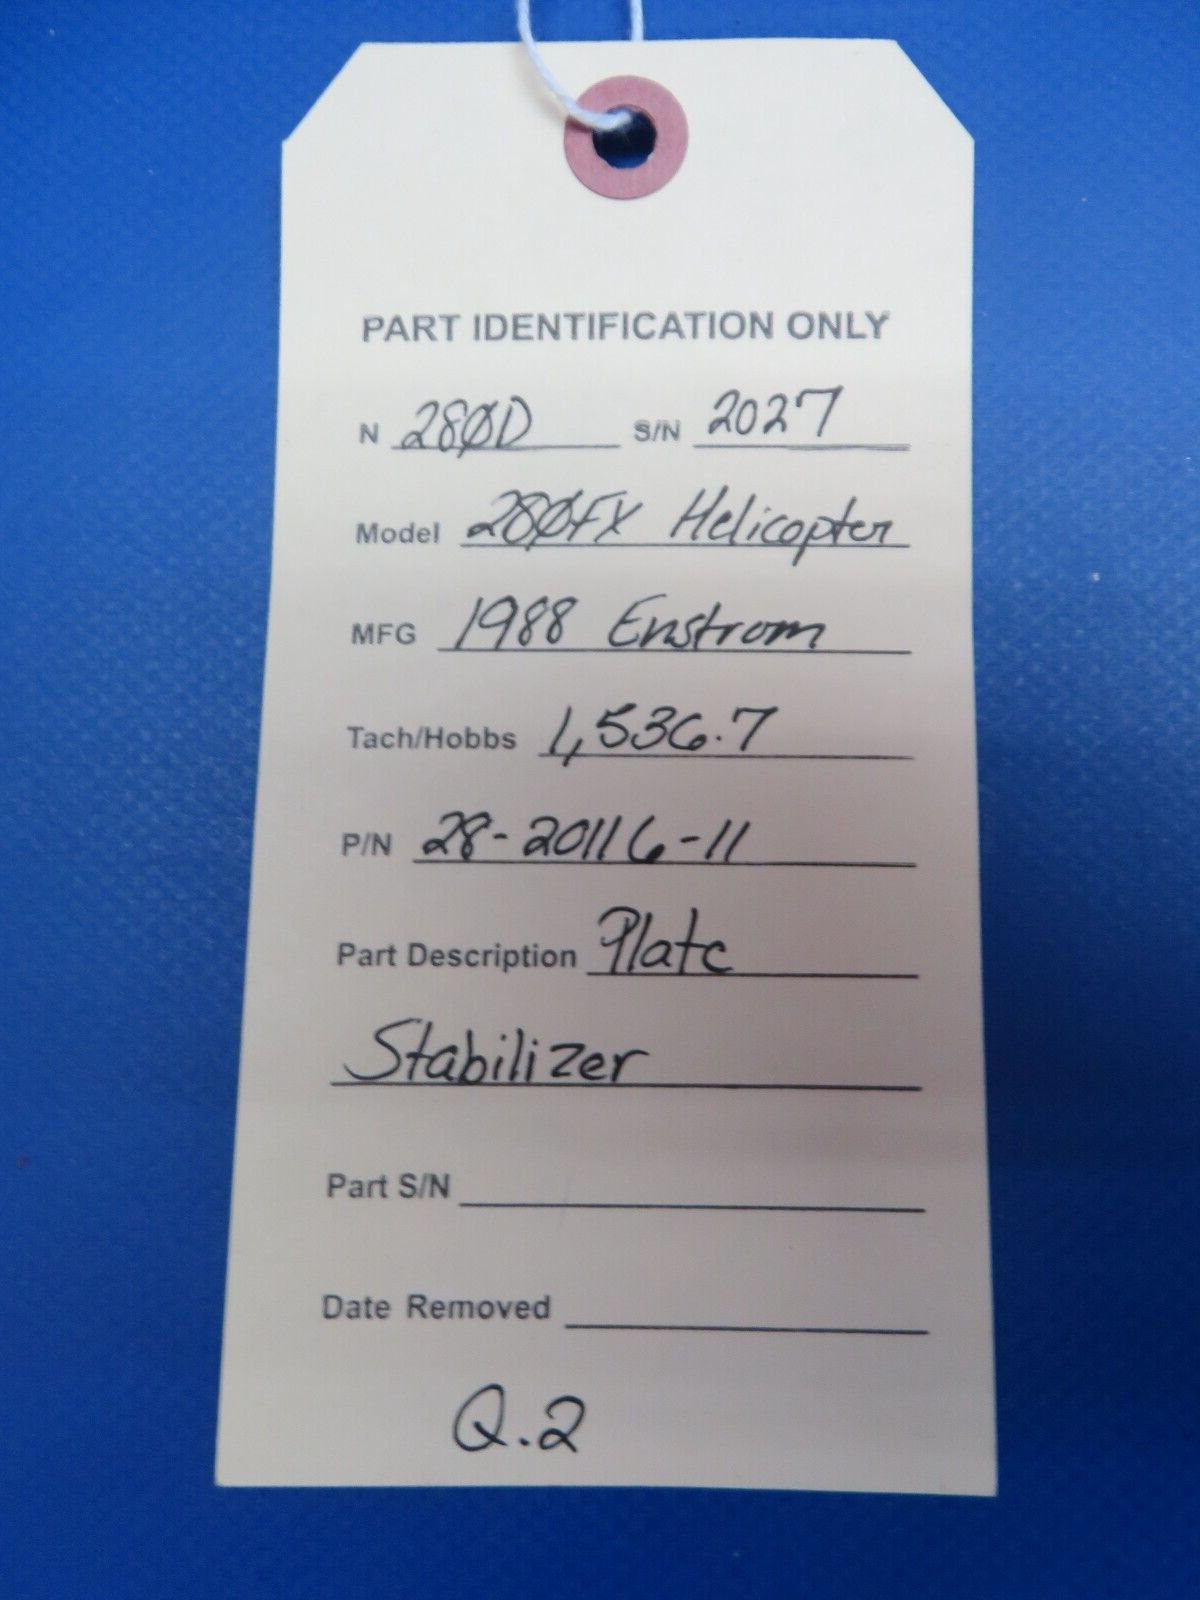 PART IDENTIFICATION ONLY
N 28ØD S/N 2027
Model 28ØFX Helicopter
MFG 1988 Enstrom
Tach/Hobbs 1,536.7
P/N 28-20116-11
Part Description Plate
Stabilizer
Part S/N
Date Removed
Q.2